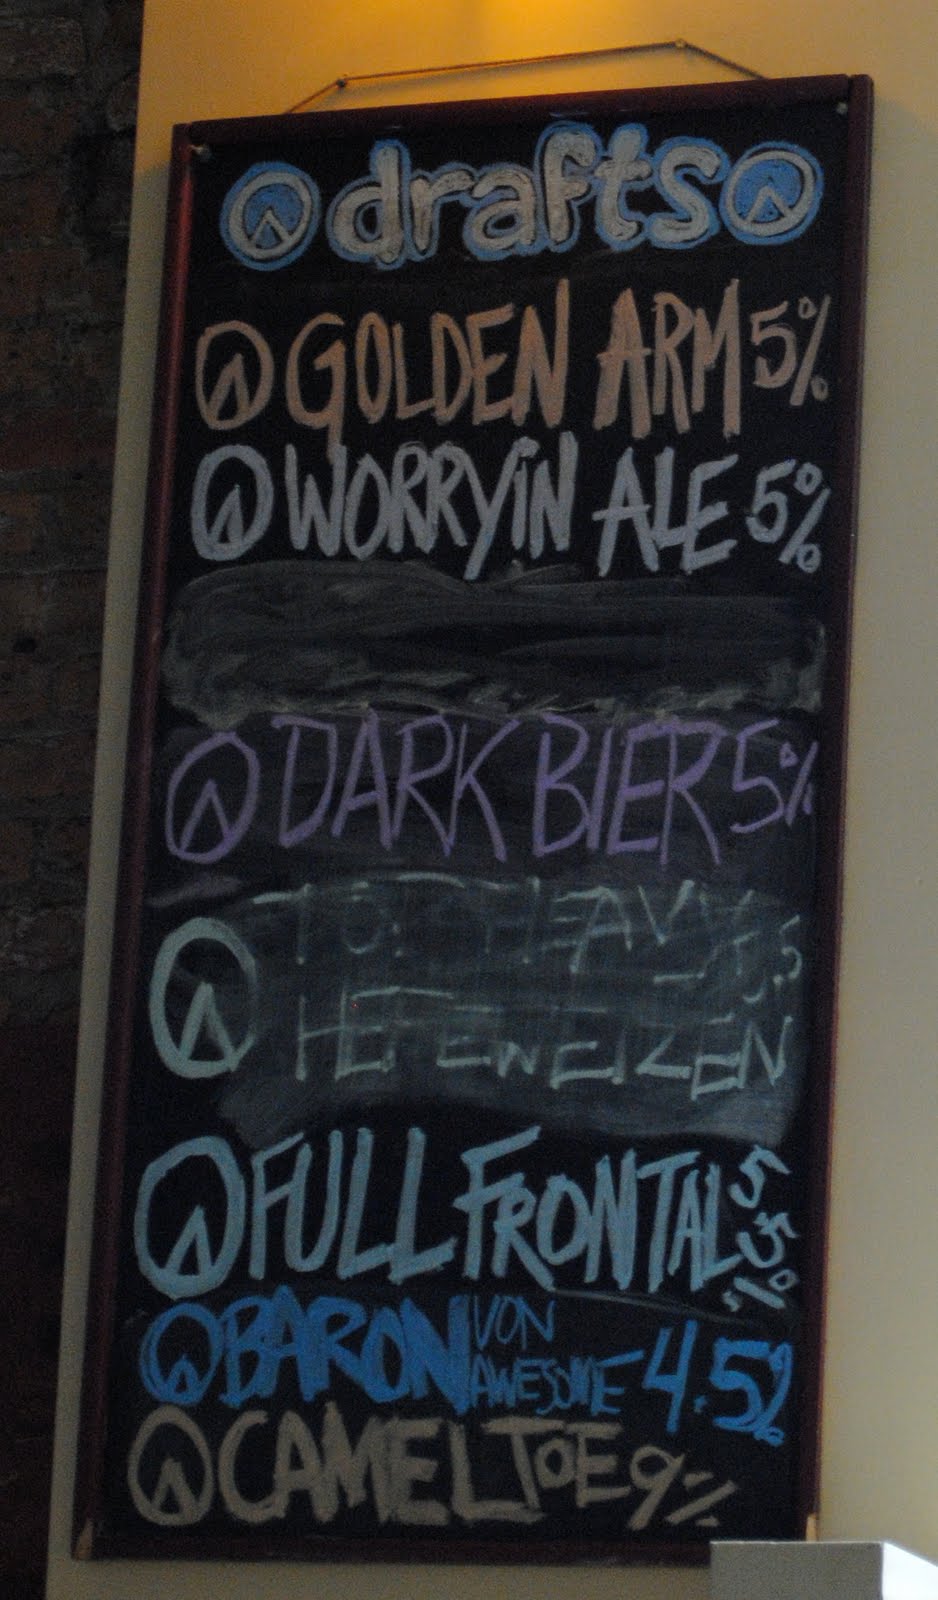 drafts
GOLDEN ARM 5%
WORRYiN ALE 5%
DARK BIER 5%
HEAVY
HEFEWEIZEN
FULL FRONTAL 5.5%
BARON VON AWESOME 4.5%
CAMEL TOE 9%